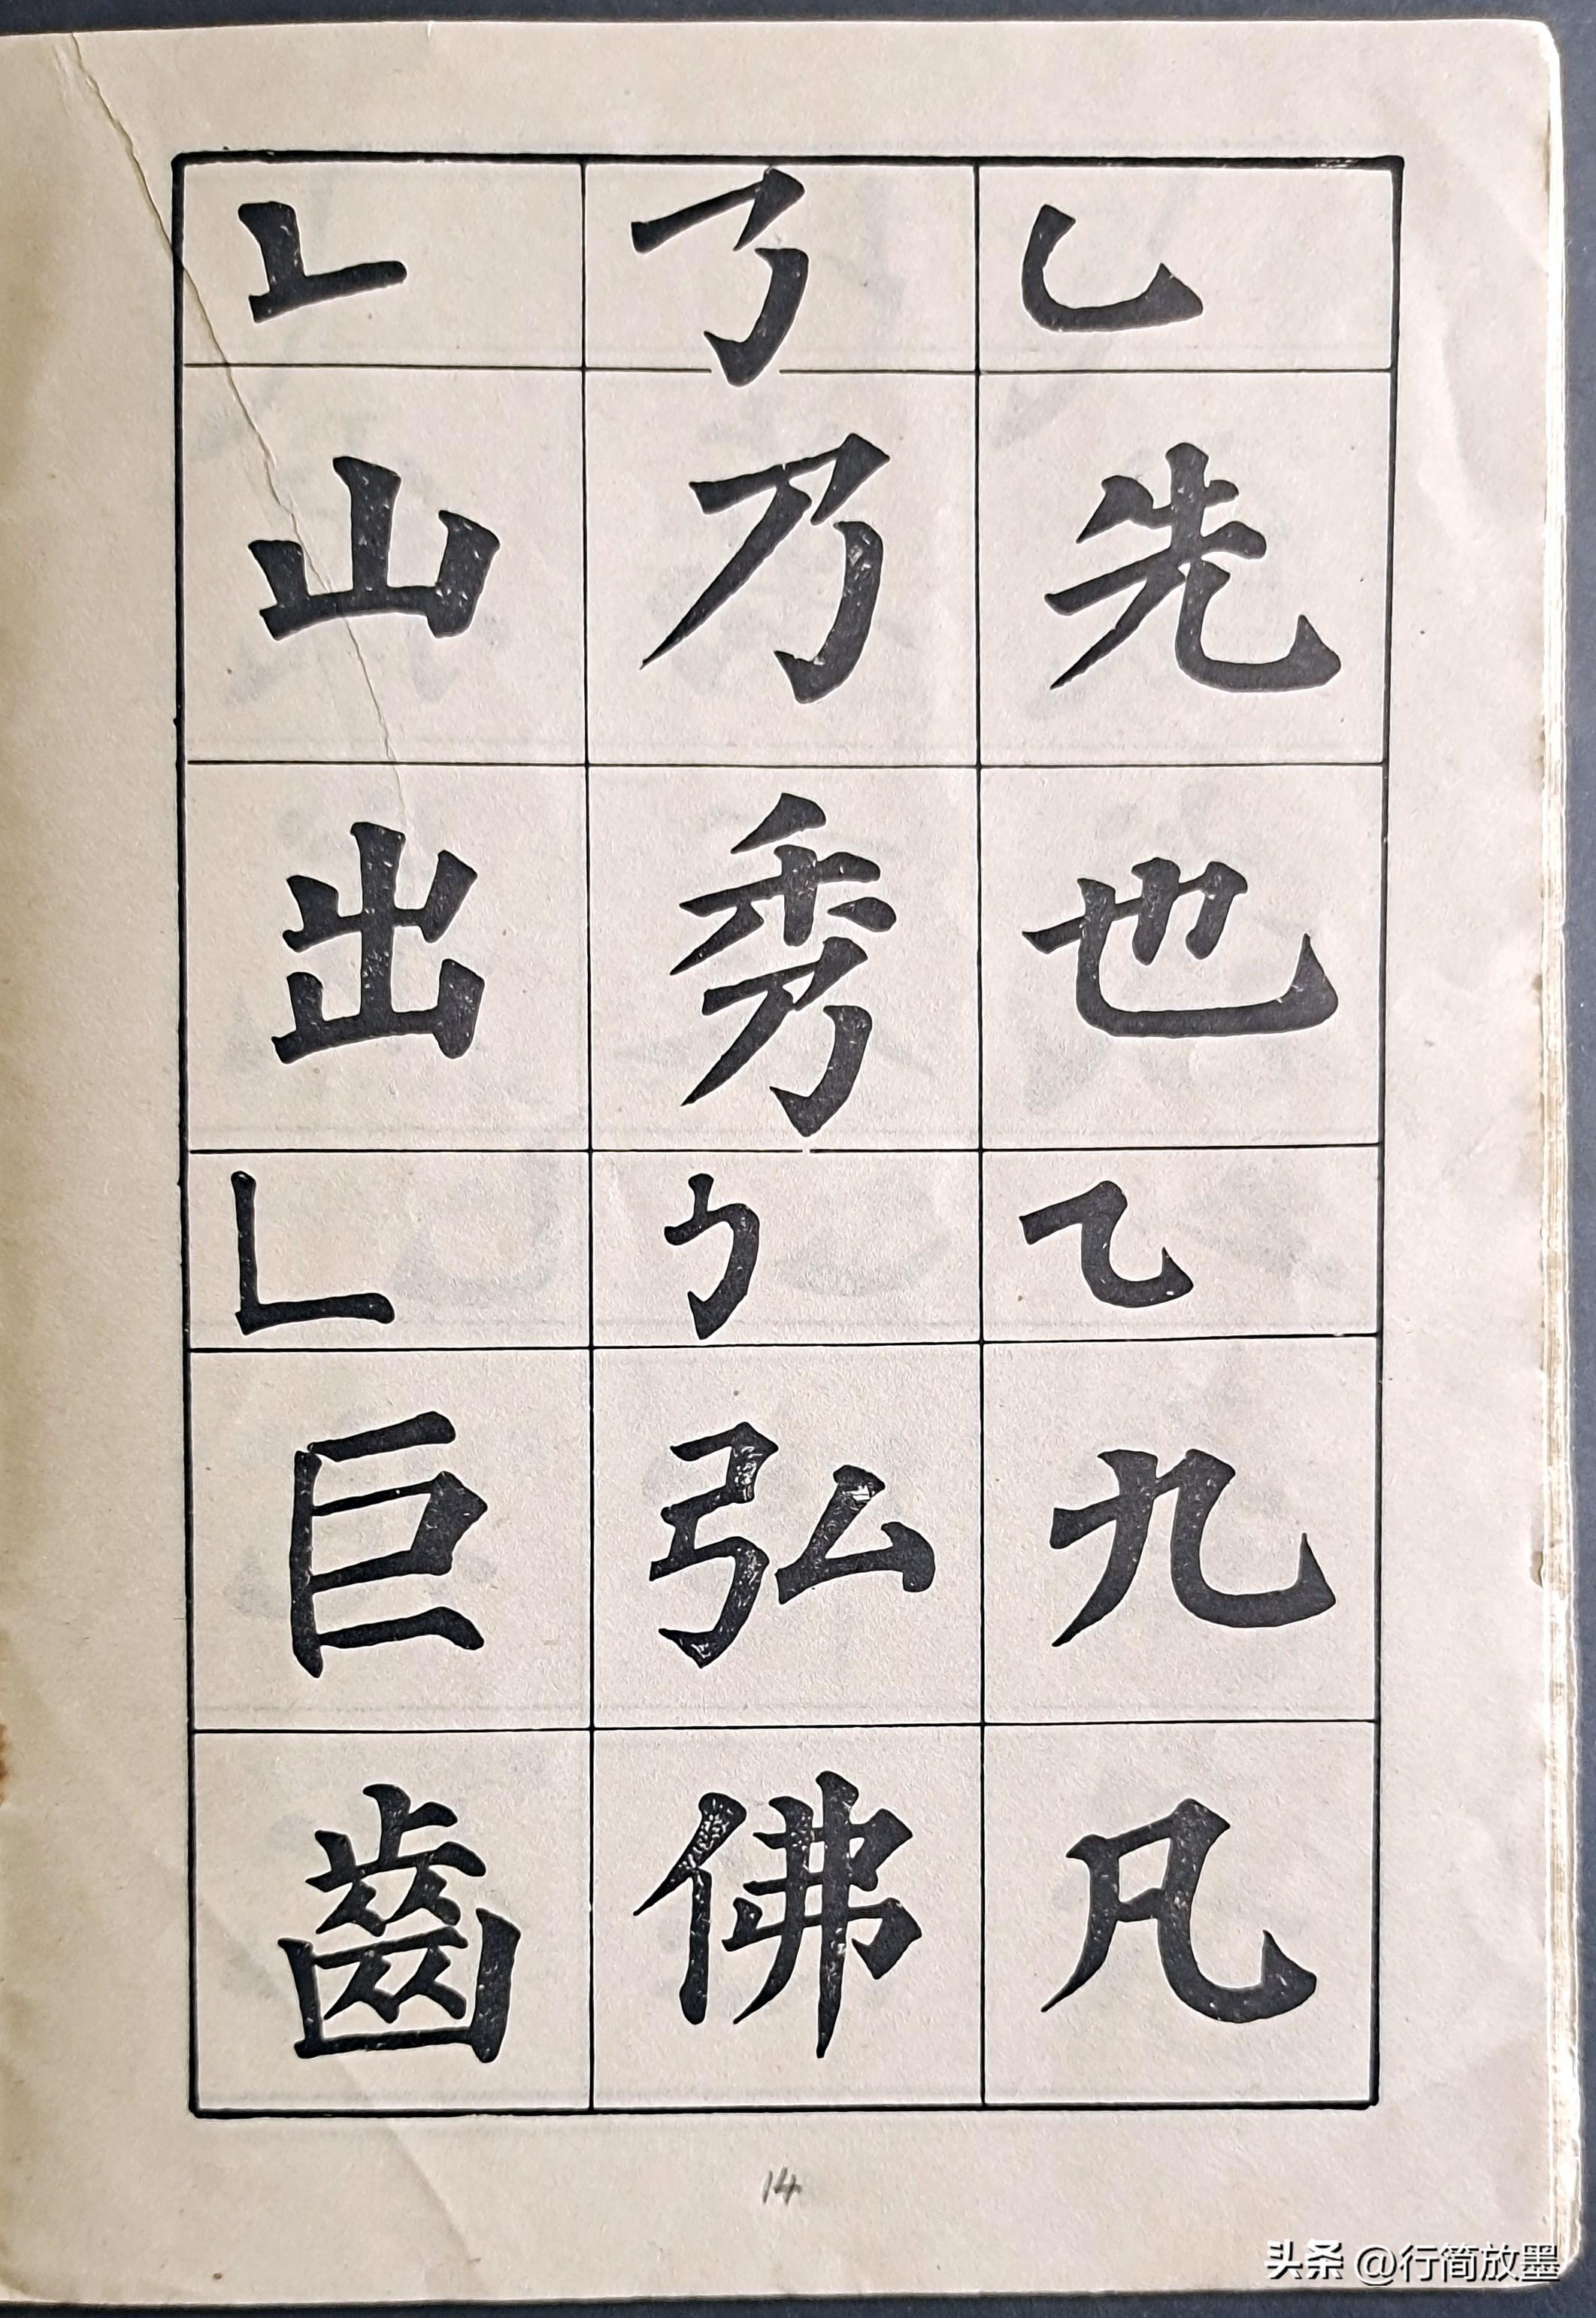 乚
先
也
乙
九
凡
㇋
乃
秀
㇉
弘
佛
𠃊
山
出
𠃊
巨
齒
14
头条 @行简放墨